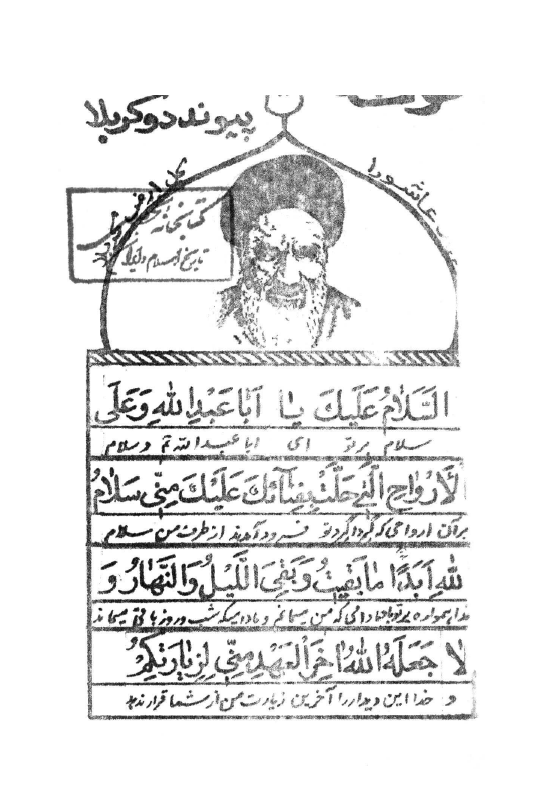 پیوند دو کربلا
عاشورا
کتابخانه
تاریخ اسلام و ایران
اَلسَّلامُ عَلَیْكَ یٰا اَبٰا عَبْدِاللهِ وَعَلَی
سلام بر تو ای ابا عبدالله و سلام
الْاَرْوٰاحِ الَّتی حَلَّتْ بِفِنٰآئِكَ عَلَیْكَ مِنّی سَلٰامُ
بر آن ارواحی که گرداگرد تو فرود آمدند از طرف من سلام
اللهِ اَبَدًا مٰا بَقیتُ وَ بَقِیَ اللَّیْلُ وَ النَّهٰارُ وَ
خدا همواره بر تو باد مادامی که من میمانم و مادامیکه شب و روز باقی میماند
لا جَعَلَهُ اللهُ اٰخِرَ الْعَهْدِ مِنّی لِزِیٰارَتِكُمْ
و خدا این دیدار را آخرین زیارت من از شما قرار ندهد